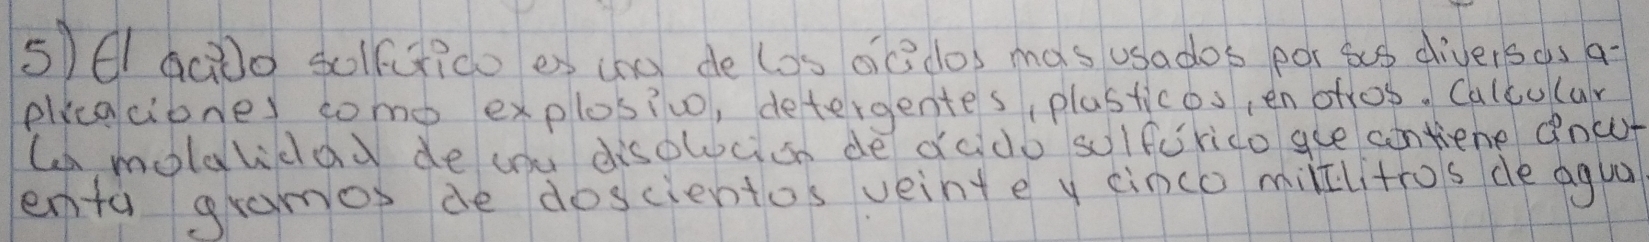 5) El acido sulfúrico es una de los ácidos mas usados por sus diversas a-
plicaciones como explosivo, detergentes, plasticos, en otros. Calcular
La molalidad de una disolución de ácido sulfúrico que contiene cincu-
enta gramos de doscientos veinte y cinco mililitros de agua